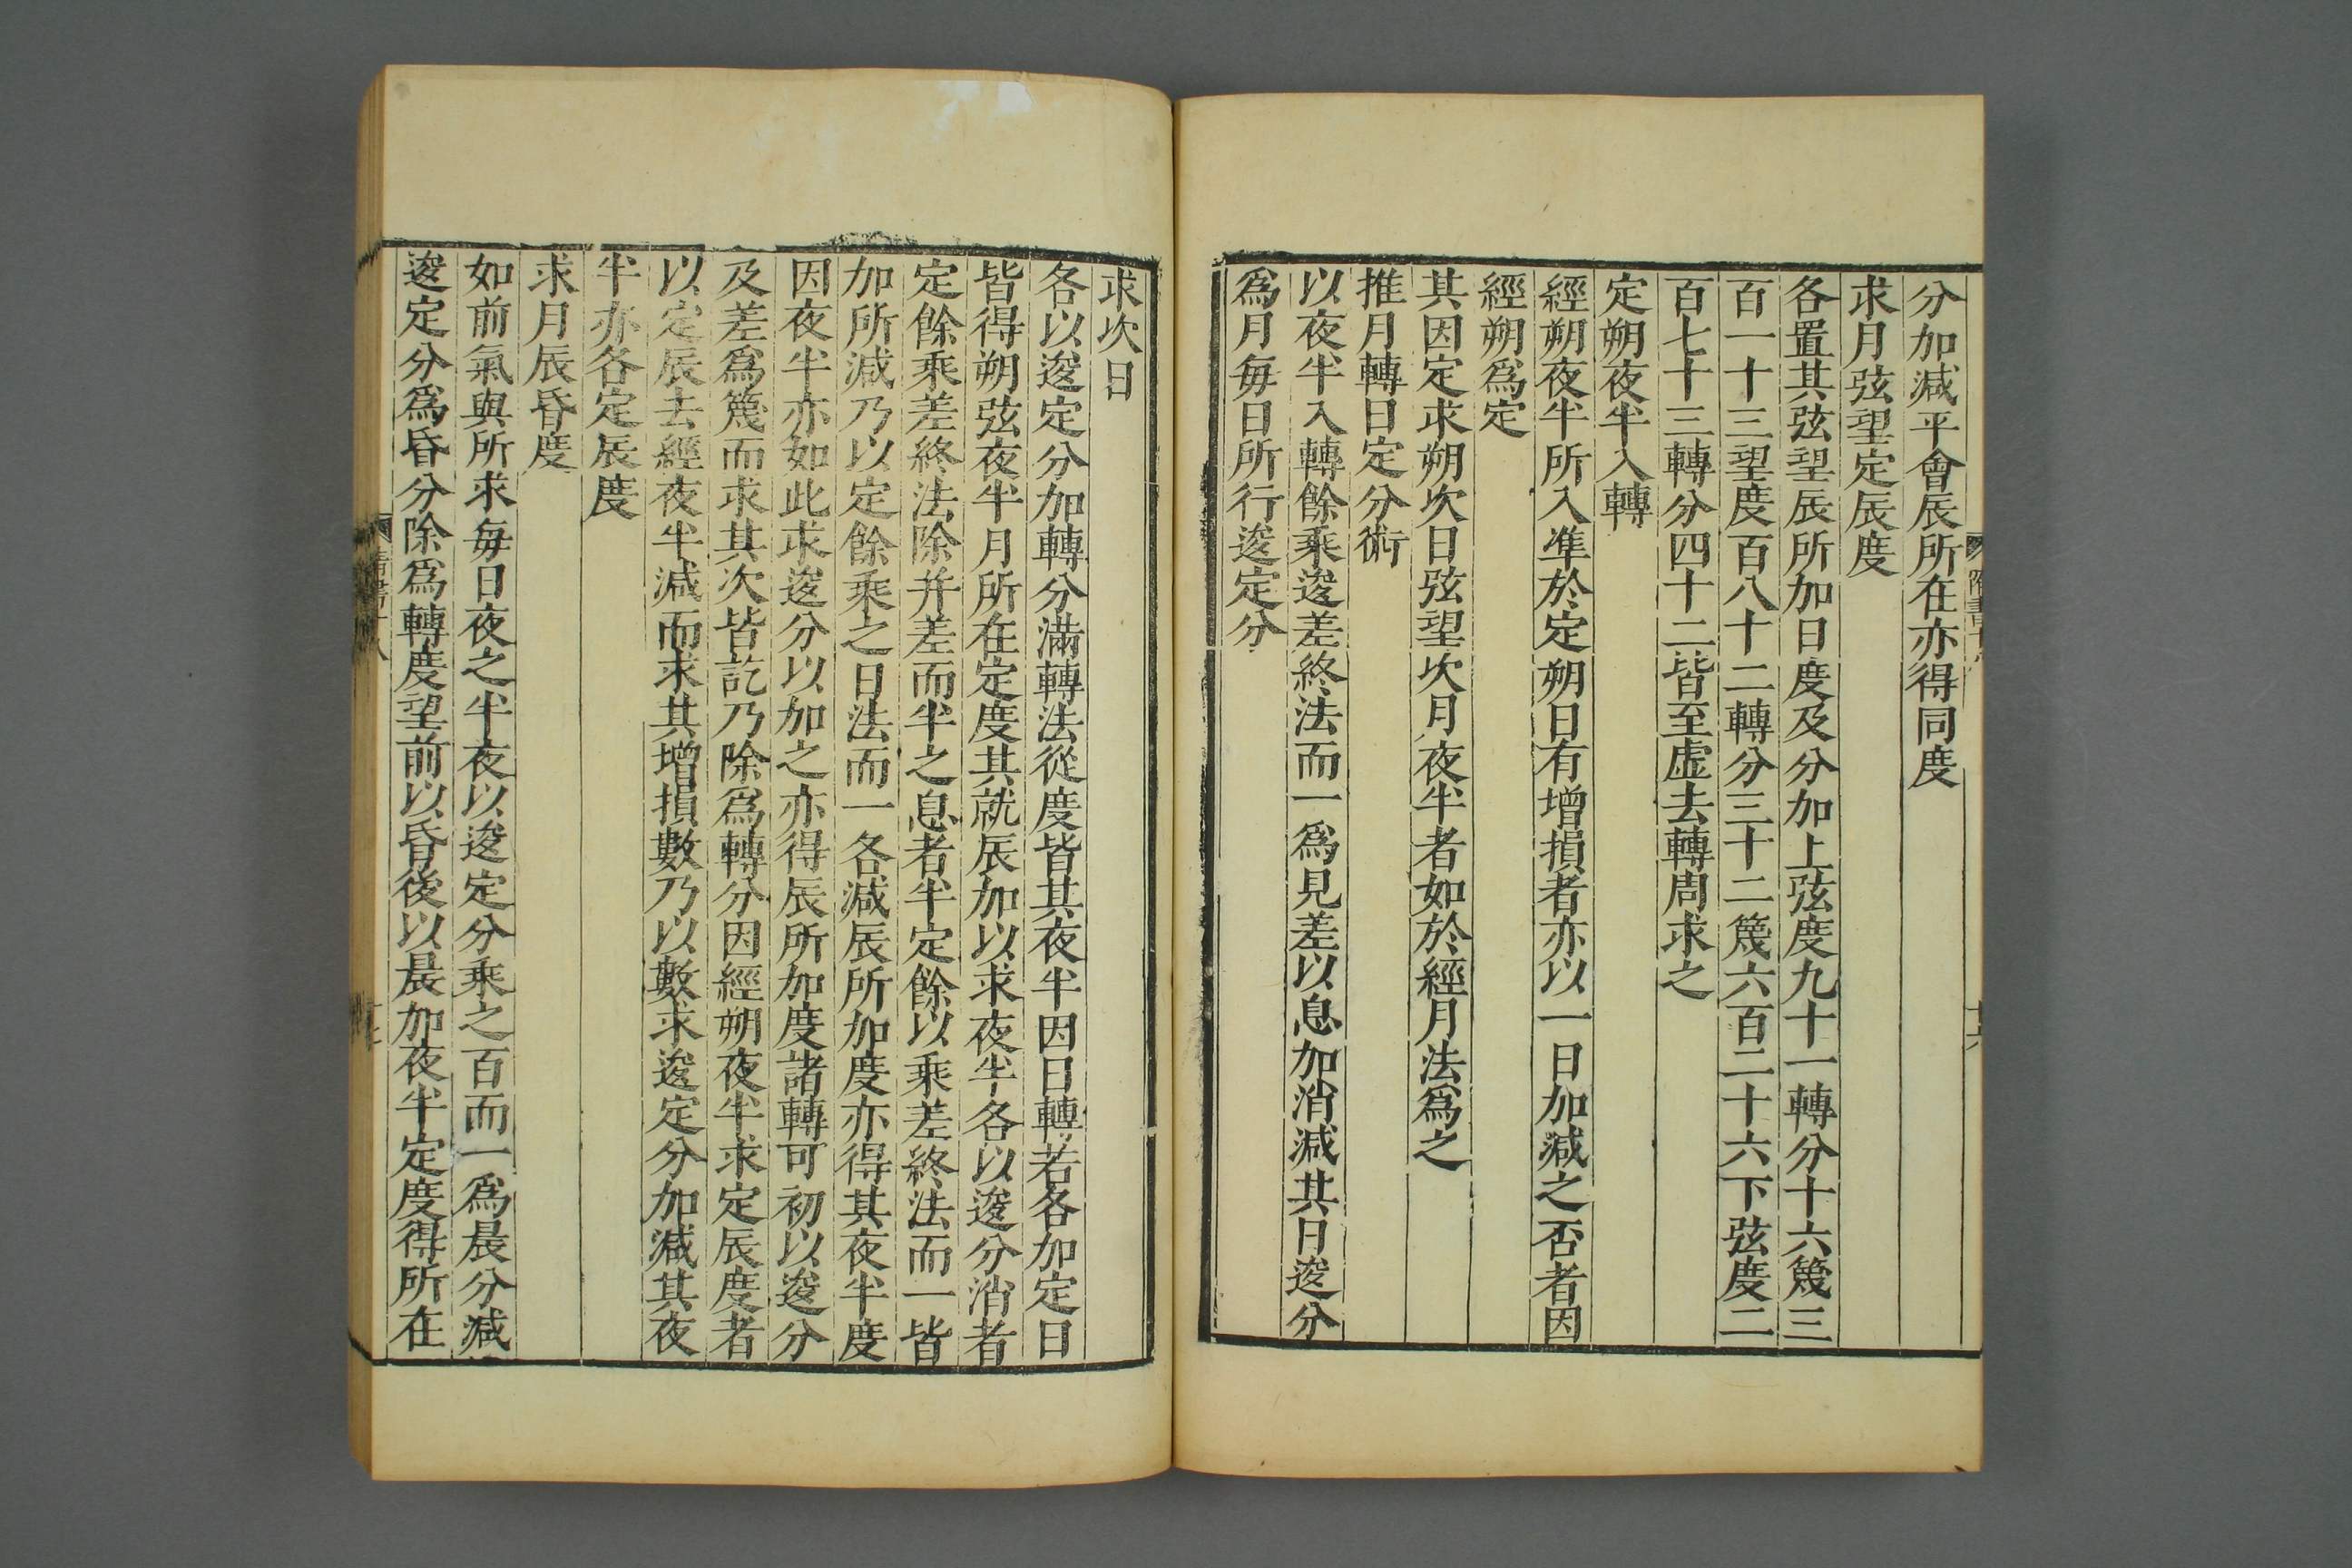 分加減平會辰所在亦得同度
求月弦望定辰度
各置其弦望辰所加日度及分加上弦度九十一轉分十六篾三
百一十三望度百八十二轉分三十二篾六百二十六下弦度二
百七十三轉分四十二皆至虛去轉周求之
定朔夜半入轉
經朔夜半所入準於定朔日有增損者亦以一日加減之否者因
經朔爲定
其因定求朔次日弦望次月夜半者如於經月法爲之
推月轉日定分術
以夜半入轉餘乘逡差終法而一爲見差以息加消減其日逡分
爲月每日所行逡定分
求次日
各以逡定分加轉分滿轉法從度皆其夜半因日轉若各加定日
皆得朔弦夜半月所在定度其就辰加以求夜半各以逡分消者
定餘乘差終法除并差而半之息者半定餘以乘差終法而一皆
加所減乃以定餘乘之日法而一各減辰所加度亦得其夜半度
因夜半亦如此求逡分以加之亦得辰所加度諸轉可初以逡分
及差爲篾而求其次皆訖乃除爲轉分因經朔夜半求定辰度者
以定辰去經夜半減而求其增損數乃以數求逡定分加減其夜
半亦各定辰度
求月辰昏度
如前氣與所求每日夜之半夜以逡定分乘之百而一爲晨分減
逡定分爲昏分除爲轉度望前以昏後以晨加夜半定度得所在